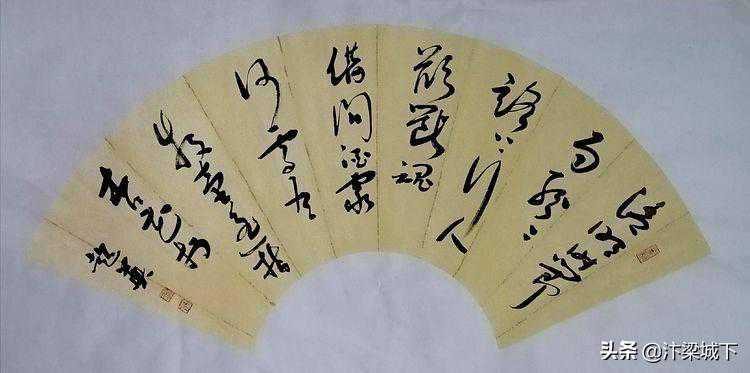 清明時節
雨紛〻
路上行人
欲斷魂
借问酒家
何處有
牧童遥指
杏花村
头条 @汴梁城下